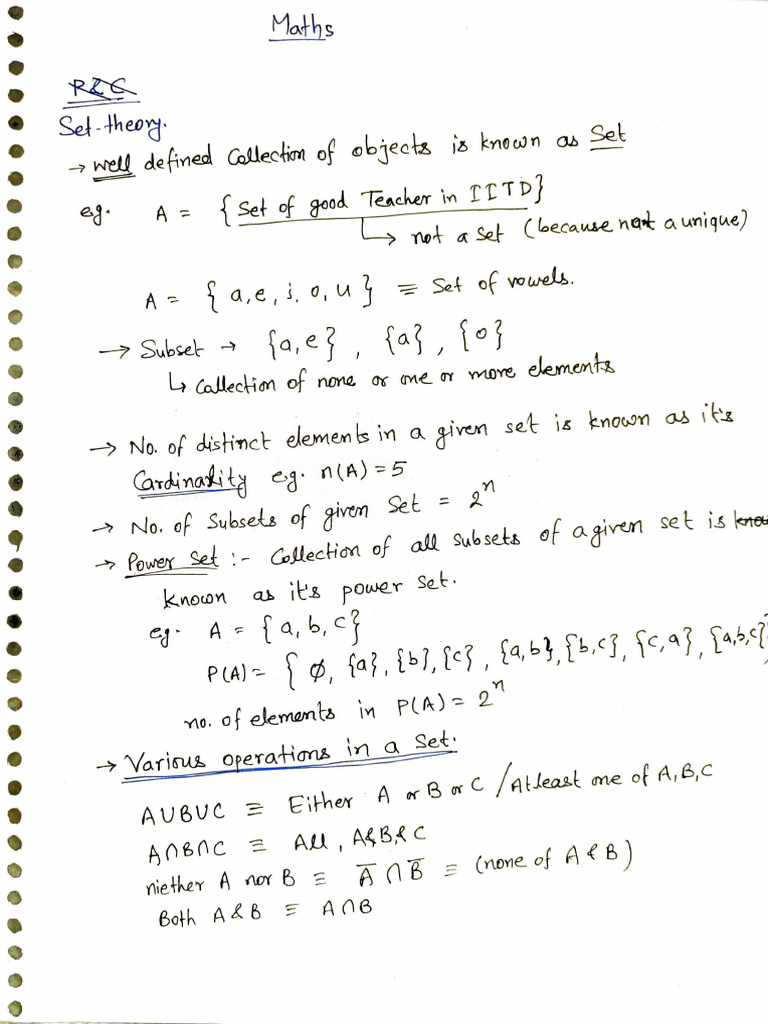 Maths
P&C
Set-theory.
→ well defined Collection of objects is known as Set
eg. A = { Set of good Teacher in IITD }
↳ not a set (because not a unique)
A = { a, e, i, o, u } ≡ Set of vowels.
→ Subset → {a, e} , {a} , {o}
↳ Collection of none or one or more elements
→ No. of distinct elements in a given set is known as it's
Cardinality e.g. n(A) = 5
→ No. of Subsets of given Set = 2^n
→ Power Set :- Collection of all subsets of a given set is know
known as it's power set.
eg. A = {a, b, c}
P(A) = { ∅, {a}, {b}, {c}, {a, b}, {b, c}, {c, a}, {a, b, c}
no. of elements in P(A) = 2^n
→ Various operations in a Set.
A∪B∪C ≡ Either A or B or C / Atleast one of A, B, C
A∩B∩C ≡ All, A&B&C
niether A nor B ≡ A̅ ∩ B̅ ≡ (none of A & B)
Both A & B ≡ A∩B